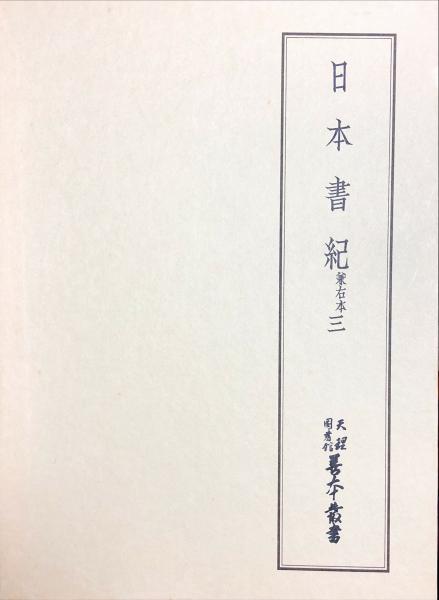 日本書紀 兼右本 三
天理
図書館
善本叢書